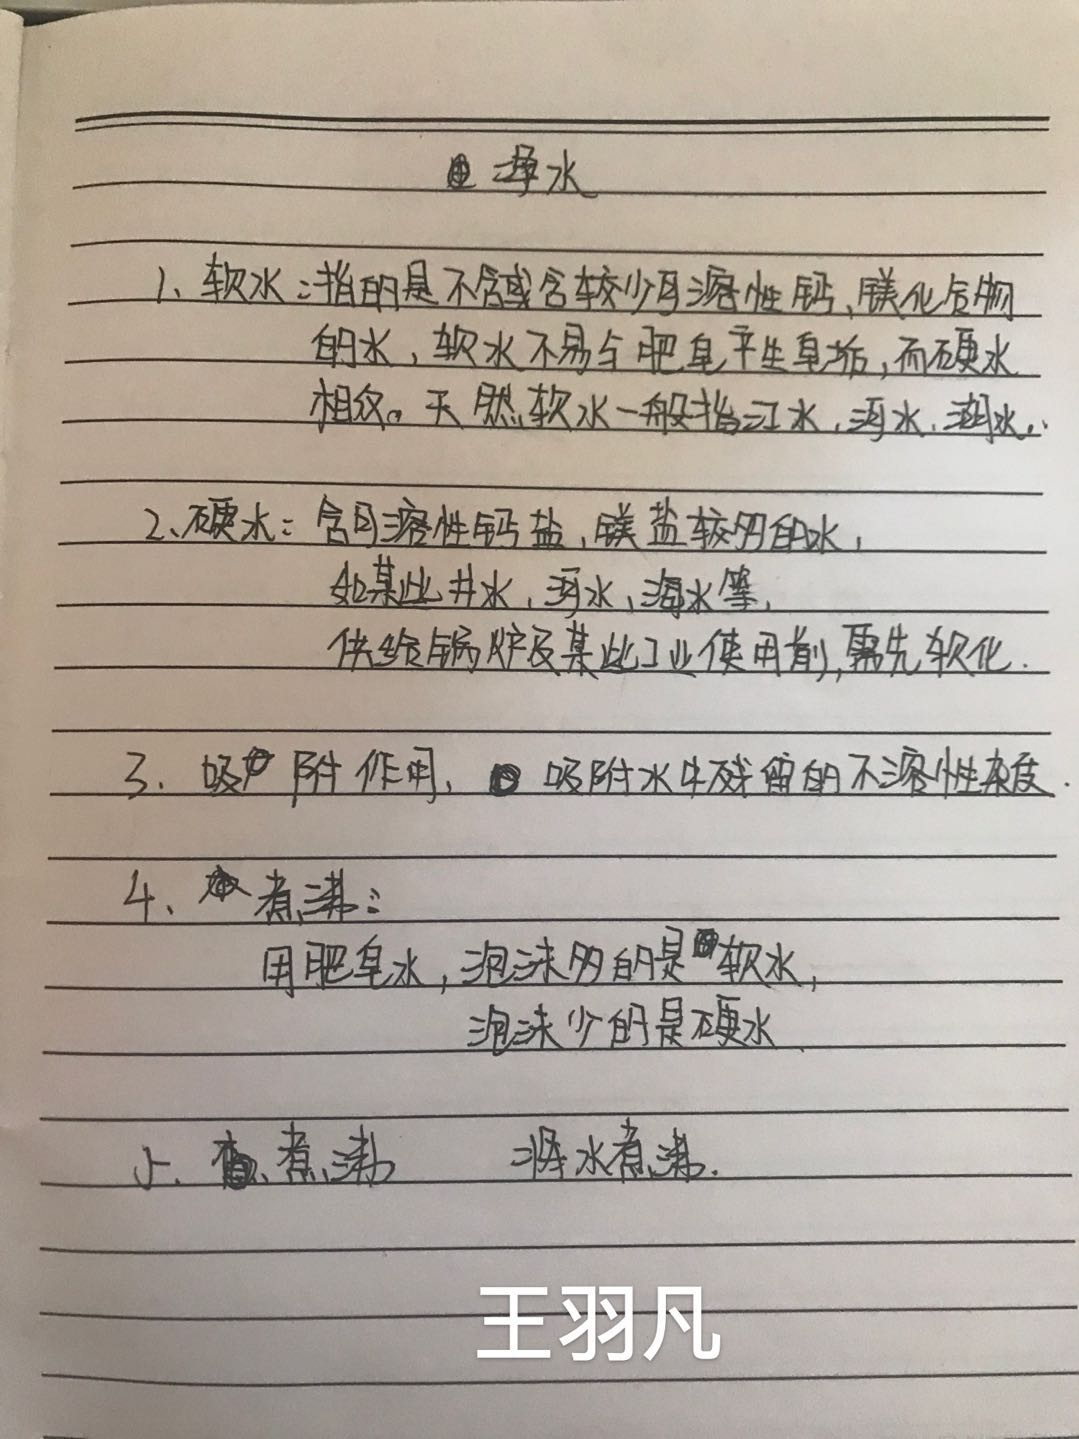 净水
1、软水：指的是不含或含较少可溶性钙、镁化合物
的水，软水不易与肥皂产生皂垢，而硬水
相反。天然软水一般指江水，河水、湖水，
2、硬水：含可溶性钙盐、镁盐较多的水，
如某些井水，河水、海水等，
供给锅炉及某些工业使用前，需先软化.
3. 吸附作用， 吸附水中残留的不溶性杂质.
4、煮沸：
用肥皂水，泡沫多的是软水，
泡沫少的是硬水
5、煮沸 将水煮沸.
王羽凡